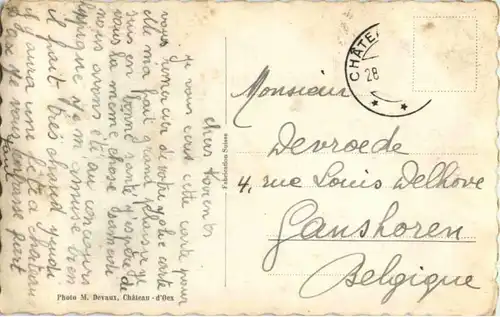 chers Parents
je vous écris cette carte pour
vous remercier de votre jolie carte
elle ma fait grand plaisir je
suis en bonne santé j'espère de
vous la même chose
nous avons été au concours
hippique je m amuse bien
il fait très chaud
il aura une fête a Chateau
je vous embrasse fort
Photo M. Devaux, Château-d'Oex
Fabrication Suisse
CHÂTE
28
Monsieur
Devroede
4, rue Louis Delhove
Ganshoren
Belgique